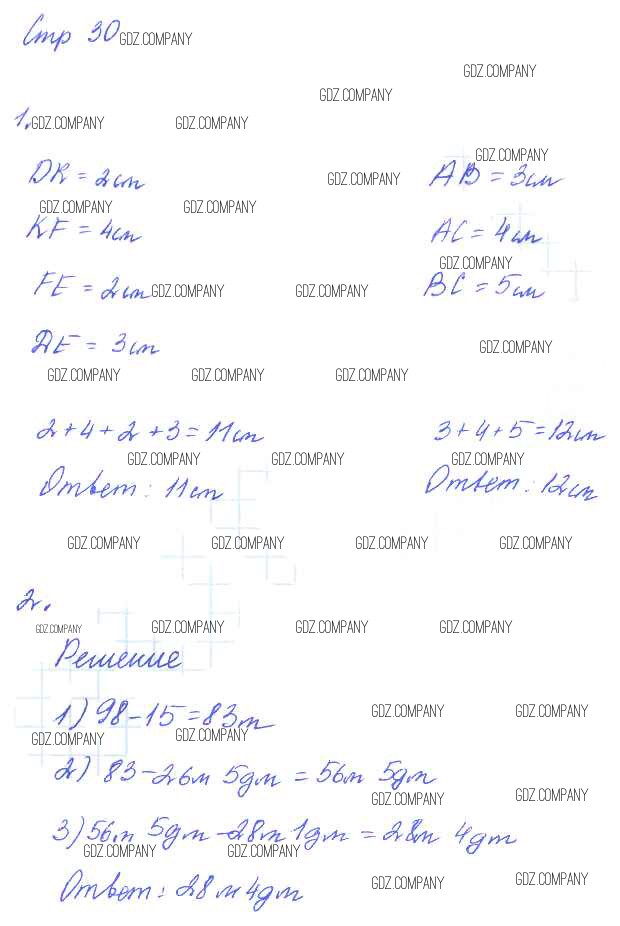 Стр 30
GDZ.COMPANY
GDZ.COMPANY
GDZ.COMPANY
1.
GDZ.COMPANY GDZ.COMPANY
GDZ.COMPANY
DK = 2см AB = 3см
GDZ.COMPANY
GDZ.COMPANY GDZ.COMPANY
KF = 4см AC = 4см
GDZ.COMPANY
FE = 2см BC = 5см
GDZ.COMPANY GDZ.COMPANY
DE = 3см
GDZ.COMPANY
GDZ.COMPANY GDZ.COMPANY GDZ.COMPANY
2+4+2+3=11см 3+4+5=12см
GDZ.COMPANY GDZ.COMPANY GDZ.COMPANY
Ответ: 11см Ответ: 12см
GDZ.COMPANY GDZ.COMPANY GDZ.COMPANY GDZ.COMPANY
2.
GDZ.COMPANY GDZ.COMPANY GDZ.COMPANY GDZ.COMPANY
Решение
1) 98-15=83м
GDZ.COMPANY GDZ.COMPANY
GDZ.COMPANY GDZ.COMPANY
2) 83-26м 5дм = 56м 5дм
GDZ.COMPANY GDZ.COMPANY
3) 56м 5дм -28м 1дм = 28м 4дм
GDZ.COMPANY GDZ.COMPANY
Ответ: 28м 4дм
GDZ.COMPANY GDZ.COMPANY